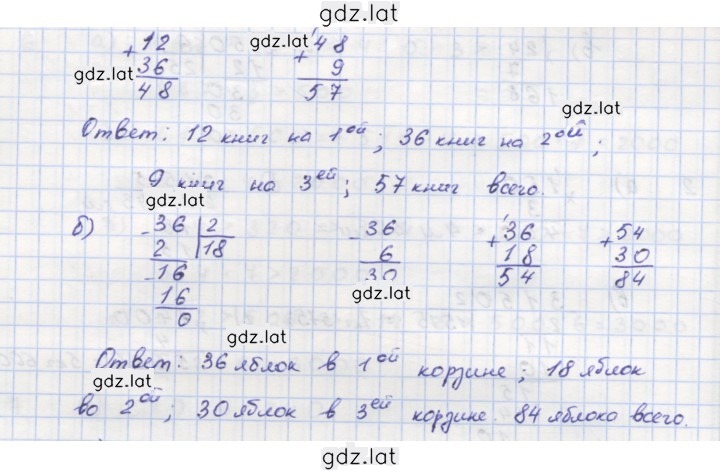 gdz.lat
+12 gdz.lat +¹48
gdz.lat 36 9
48 57
gdz.lat
Ответ: 12 книг на 1ой; 36 книг на 2ой;
9 книг на 3ей; 57 книг всего.
gdz.lat
б) -36 | 2 -36 +¹36 +54
2 | 18 6 18 30
-16 30 54 84
16 gdz.lat
0
gdz.lat
Ответ: 36 яблок в 1ой корзине; 18 яблок
gdz.lat
во 2ой; 30 яблок в 3ей корзине. 84 яблоко всего.
gdz.lat
gdz.lat